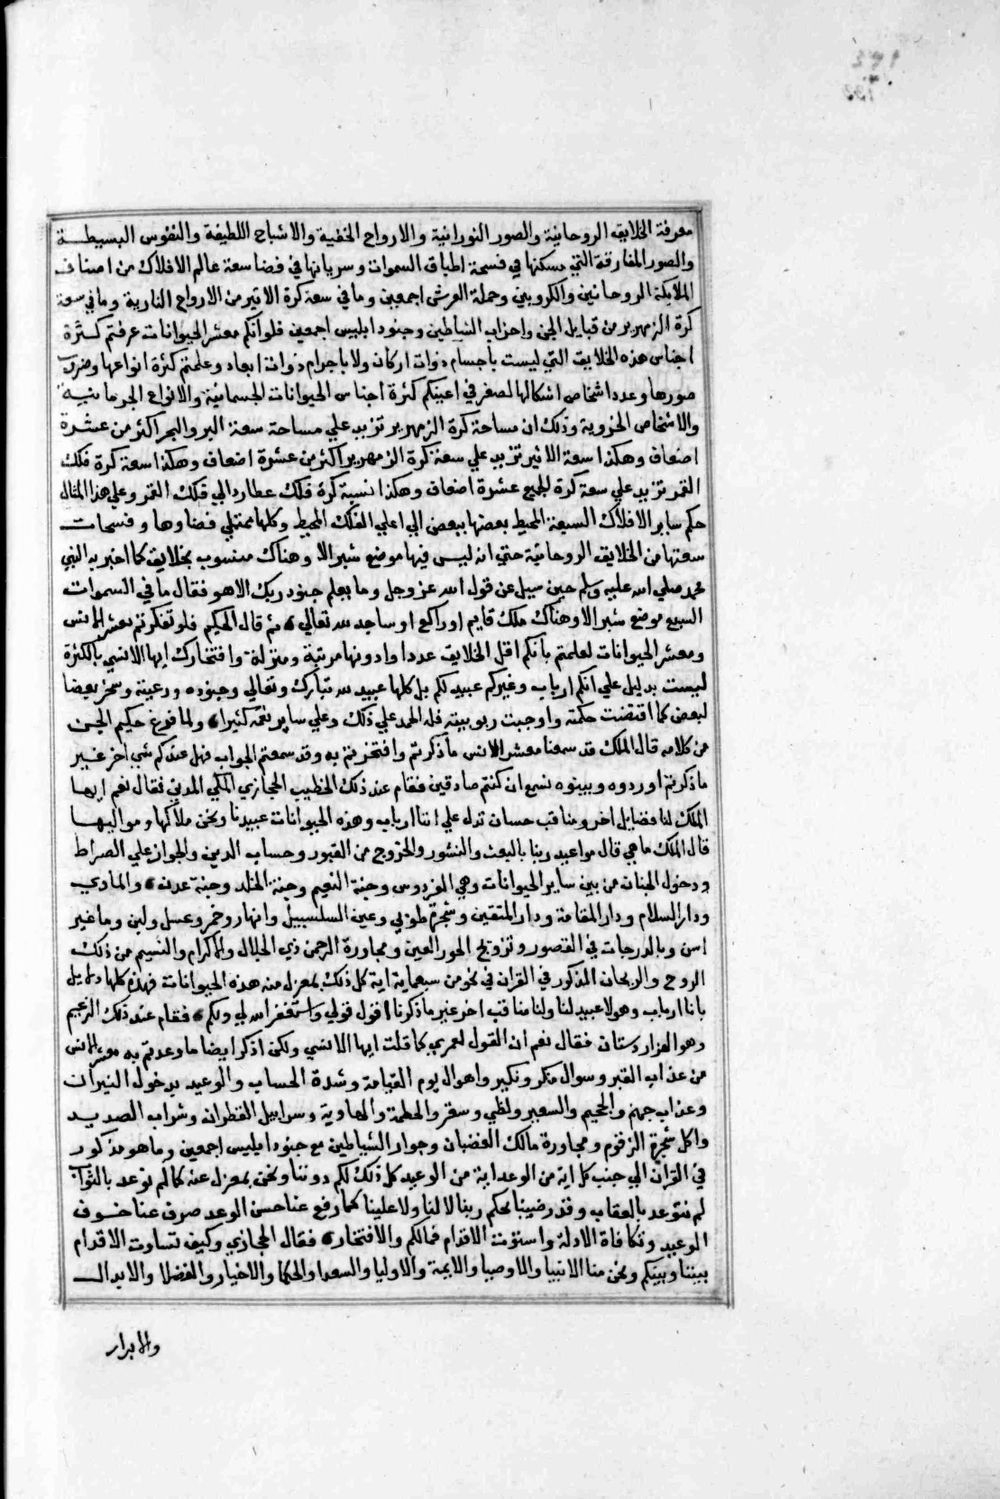 معرفة الخلايق الروحانية والصور النورانية والارواح الخفية والاشباح اللطيفة والنفوس البسيطة
والصور المفارقة التي مسكنها في فسحة اطباق السموات وسريانها في فضا سعة عالم الافلاك من اصناف
الملايكة الروحانين والكروبين وحملة العرش اجمعين وما في سعة كرة الاثير من الارواح النارية وما في سعة
كرة الزمهرير من قبايل الجن واحزاب الشياطين وجنود ابليس اجمعين فلو انكم معشر الحيوانات عرفتم كثرة
اجناس هذه الخلايق التي ليست باجسام ذوات اركان ولا باجرام ذوات ابعاد وعلمتم كثرة انواعها وضروب
صورها وعدد اشخاص اشكالها لصغر في اعينكم كثرة اجناس الحيوانات الجسمانية والانواع الجرمانية
والاشخاص الجزوية وذلك ان مساحة كرة الزمهرير تزيد علي مساحة سعة البر والبحر اكثر من عشرة
اضعاف وهكذا سعة الاثير تزيد علي سعة كرة الزمهرير اكثر من عشرة اضعاف وهكذا سعة كرة فلك
القمر تزيد علي سعة كرة الجميع عشرة اضعاف وهكذا نسبة كرة فلك عطارد الي فلك القمر وعلي هذا المثال
حكم ساير الافلاك السبعة المحيط بعضها ببعض الي اعلي الفلك المحيط وكلها ممتلي فضاوها وفسحات
سعتها من الخلايق الروحانية حتي انه ليس فيها موضع شبر الا وهناك منسوب بخلايق كما اخبر به النبي
محمد صلي الله عليه وسلم حين سيل عن قول الله عز وجل وما يعلم جنود ربك الا هو فقال ما في السموات
السبع موضع شبر الا وهناك ملك قايم او راكع او ساجد لله تعالي ثم قال الحكيم فلو تفكرتم معشر الانس
ومعشر الحيوانات لعلمتم بانكم اقل الخلايق عددا وادونها مرتبة ومنزلة وافتخارك ايها الانسي بالكثرة
ليست بدليل علي انكم ارباب وغيركم عبيد لكم بل كلها عبيد لله تبارك وتعالي وجنوده ورعيته وسخر بعضا
لبعض كما اقتضت حكمته واوجبت ربوبيته فله الحمد علي ذلك وعلي ساير نعمه كثيرا ولما فرغ حكيم الجن
من كلامه قال الملك قد سمعنا معشر الانس ما ذكرتم وافتخرتم به وقد سمعتم الجواب فهل عندكم شي اخر غير
ما ذكرتم اوردوه وبينوه نسمع ان كنتم صادقين فقام عند ذلك الخطيب الحجازي المكي المدني فقال نعم ايها
الملك لنا فضايل اخر ومناقب حسان تدل علي اننا ارباب وهذه الحيوانات عبيدنا ونحن ملاكها ومواليها
قال الملك ما هي قال مواعيد ربنا بالبعث والنشور والخروج من القبور وحساب الدين والجواز علي الصراط
ودخول الجنان من بين ساير الحيوانات وهي الفردوس وجنة النعيم وجنة الخلد وجنة عدن والماوي
ودار السلام ودار المقامة ودار المتقين وشجرة طوبي وعين السلسبيل وانهار وخمر وعسل ولبن وما غير
اسن وبالدرجات في القصور وتزويج الحور العين ومجاورة الرحمن ذي الجلال والاكرام والنسيم من ذلك
الروح والريحان المذكور في القران في نحو من سبعماية اية كل ذلك بمعزل منه هذه الحيوانات فهذه كلها دلايل
بانا ارباب وهولا عبيد لنا ولنا مناقب اخر غير ما ذكرنا اقول قولي واستغفر الله لي ولكم فقام عند ذلك الزعيم
وهو الهزاردستان فقال نعم ان القول لعمري كما قلت ايها الانسي ولكن اذكر ايضا ما وعدتم به معشر الانس
من عذاب القبر وسوال منكر ونكير واهوال يوم القيامة وشدة الحساب والوعيد بدخول النيران
وعذاب جهنم والجحيم والسعير ولظي وسقر والحطمة والهاوية وسرابيل القطران وشراب الصديد
واكل شجرة الزقوم ومجاورة مالك الغضبان وجوار الشياطين مع جنود ابليس اجمعين وما هو مذكور
في القران الي جنب كل اية من الوعد اية من الوعيد كل ذلك لكم دوننا ونحن بمعزل عنه كما لم نوعد بالثواب
لم نتوعد بالعقاب وقد رضينا بحكم ربنا لا لنا ولا علينا كما رفع عنا حسن الوعد صرف عنا خوف
الوعيد وتكافاة الادلة واستوت الاقدام فما لكم والافتخار فقال الحجازي وكيف تساوت الاقدام
بيننا وبينكم ونحن منا الانبيا والاوصيا والايمة والاوليا والسعدا والحكما والاخيار والفضلا والابدال
والابرار